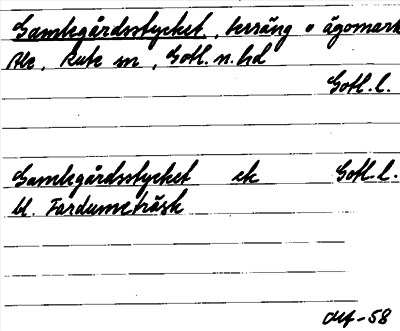 Gamlegårdsstycket, terräng o ägomark
Ale, Rute sn, Gotl. n. hd
Gotl. l.
Gamlegårdsstycket ek Gotl. l.
bl. Fardumeträsk
-58